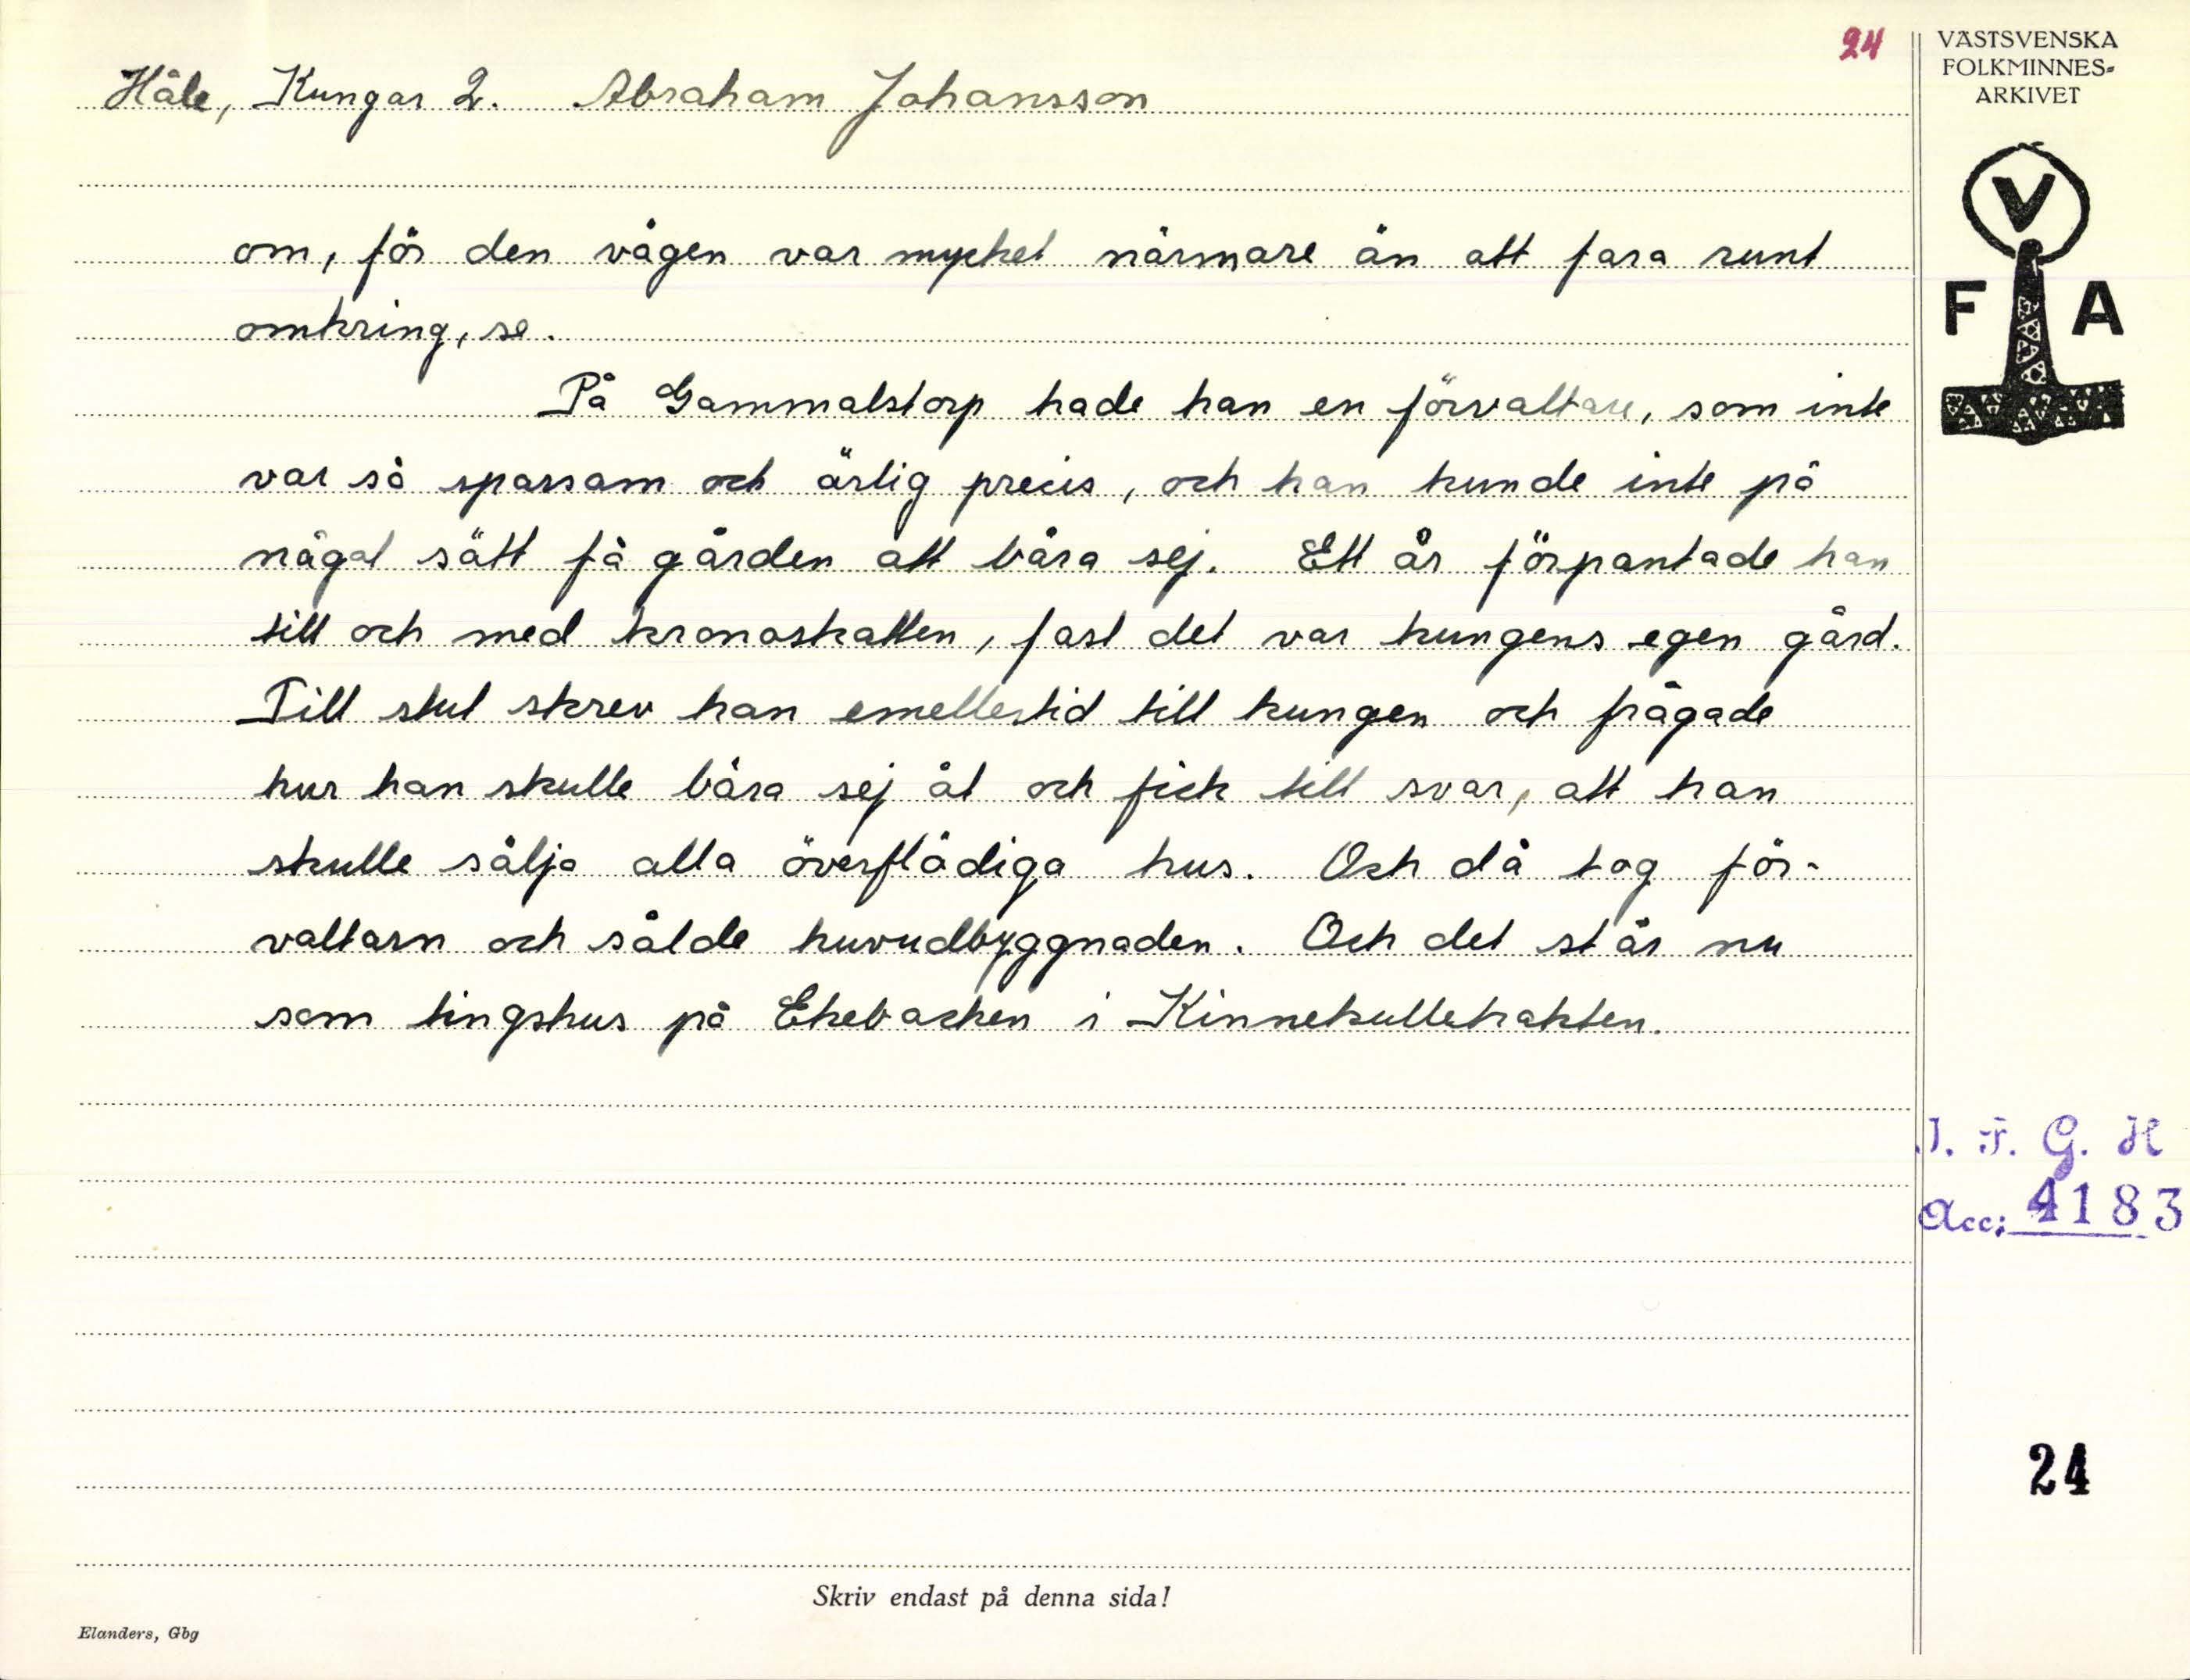 24
Håle, Kungar 2. Abraham Johansson
om, för den vägen var mycket närmare än att fara runt
omkring, se.
På Gammalstorp hade han en förvaltare, som inte
var så sparsam och ärlig precis, och han kunde inte på
något sätt få gården att bära sej. Ett år förpantade han
till och med kronoskatten, fast det var kungens egen gård.
Till slut skrev han emellertid till kungen och frågade
hur han skulle bära sej åt och fick till svar, att han
skulle sälja alla överflödiga hus. Och då tog för-
valtarn och sålde huvudbyggnaden. Och det står nu
som tingshus på Ekebacken i Kinnekulletrakten.
Skriv endast på denna sida!
Elanders, Gbg
VÄSTSVENSKA
FOLKMINNES-
ARKIVET
V
F A
I. F. G. H
Acc: 4183
24